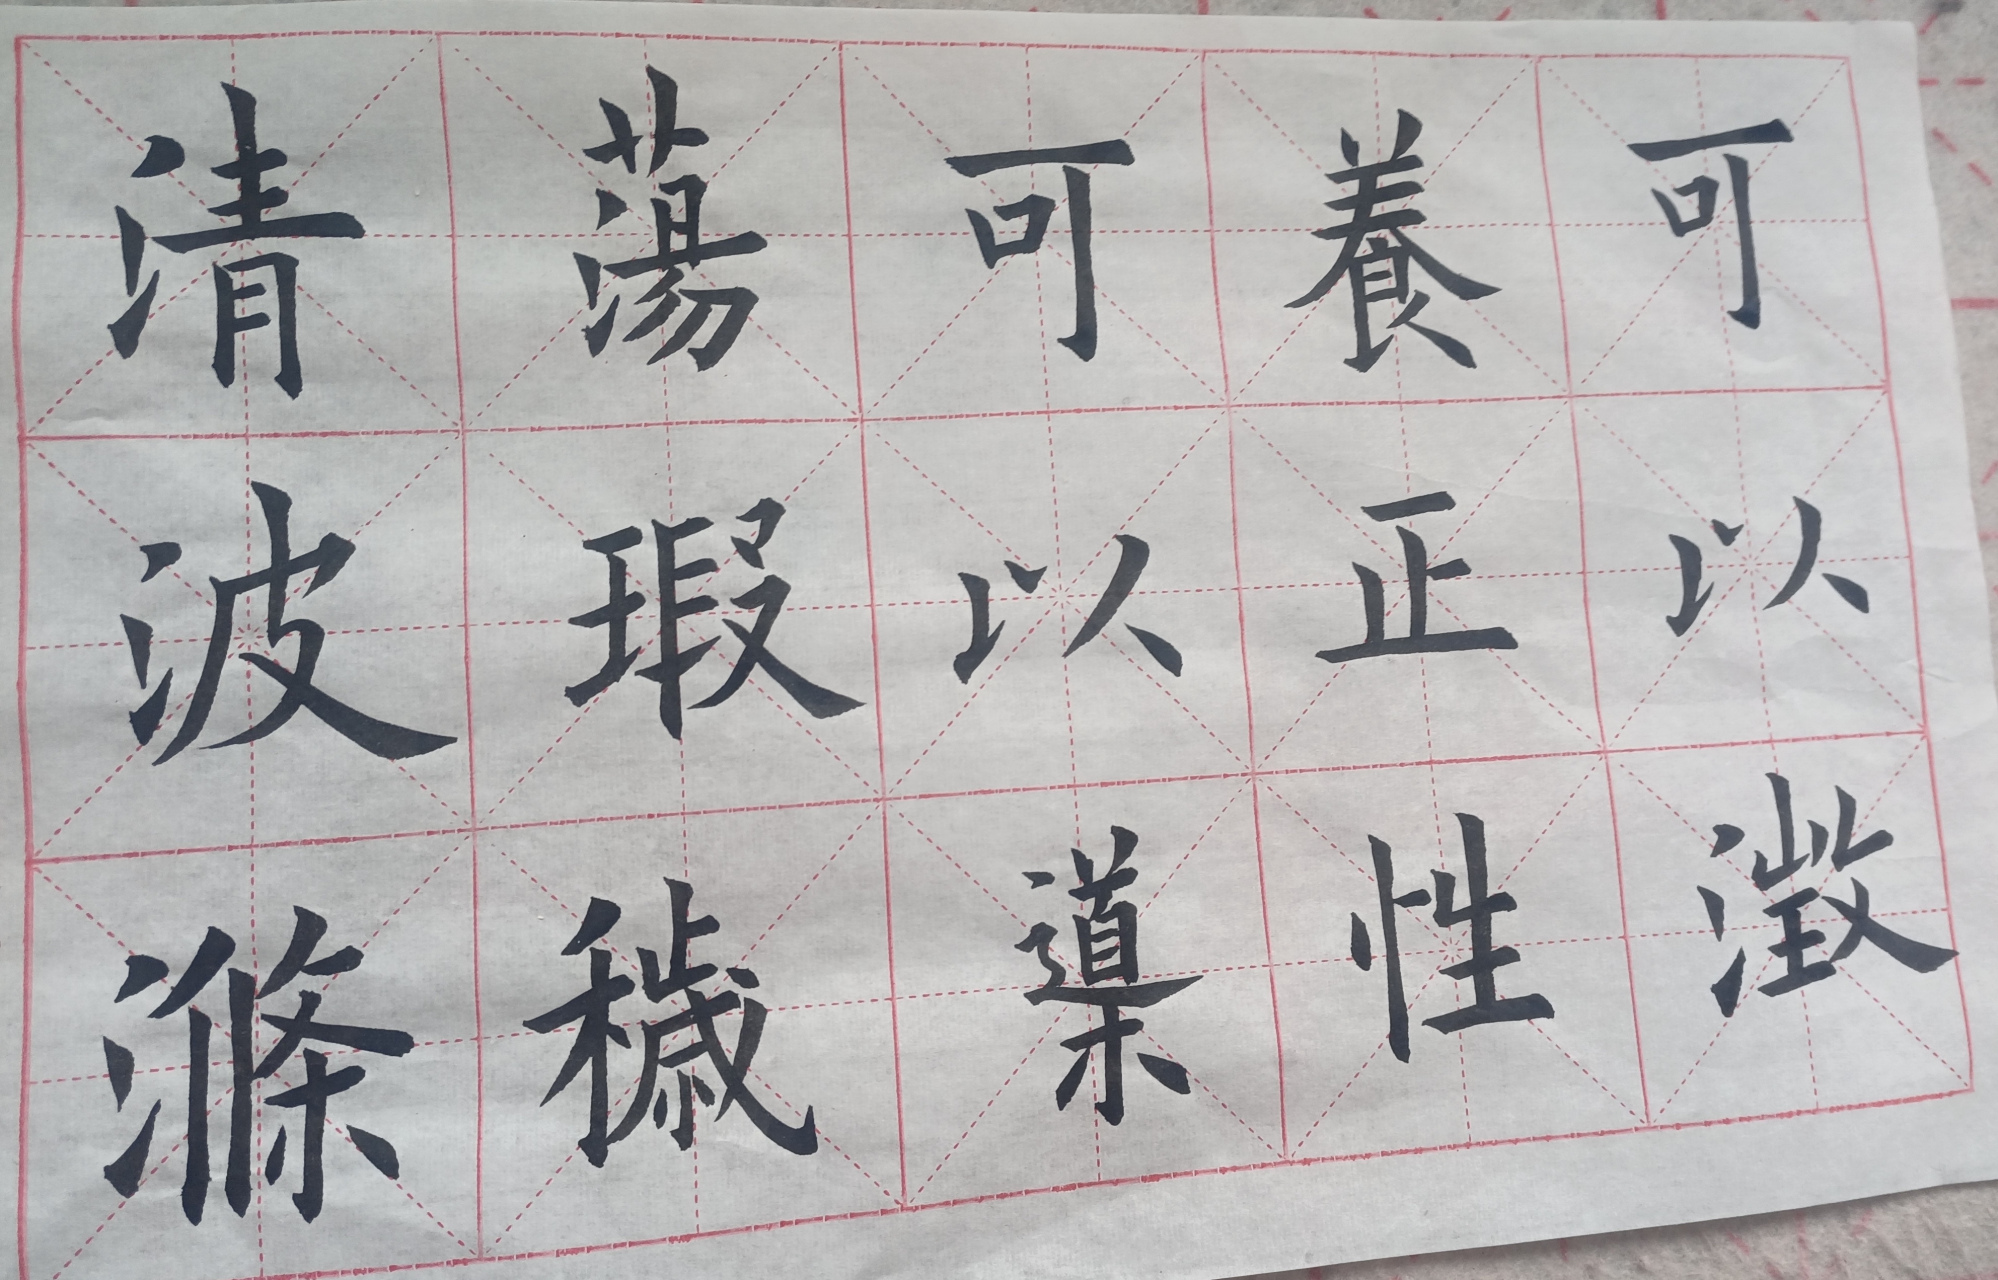 清波滌
蕩瑕穢
可以導
養正性
可以澂